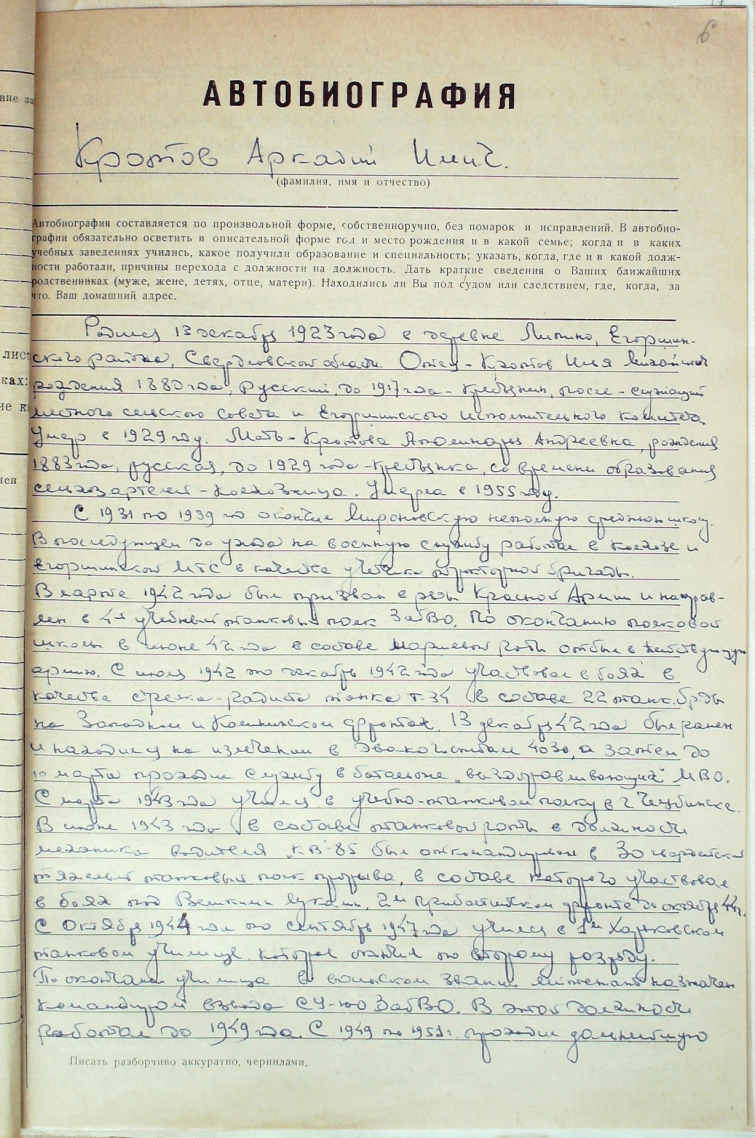 6
АВТОБИОГРАФИЯ
Кротов Аркадий Ильич.
(фамилия, имя и отчество)
Автобиография составляется по произвольной форме, собственноручно, без помарок и исправлений. В автобио-
графии обязательно осветить в описательной форме год и место рождения и в какой семье; когда и в каких
учебных заведениях учились, какое получили образование и специальность; указать, когда, где и в какой долж-
ности работали, причины перехода с должности на должность. Дать краткие сведения о Ваших ближайших
родственниках (муже, жене, детях, отце, матери). Находились ли Вы под судом или следствием, где, когда, за
что. Ваш домашний адрес.
Родился 13 декабря 1923 года в деревне Липино, Егоршин-
ского района, Свердловской области. Отец - Кротов Илья Михайлович
рождения 1880 года, русский, до 1917 года - крестьянин, после - служащий
местного сельского совета и Егоршинского исполнительного комитета
Умер в 1929 году. Мать - Кротова Апполинария Андреевна, рождения
1883 года, русская, до 1929 года - крестьянка, со времени образования
сельхозартелей - колхозница. Умерла в 1955 году.
С 1931 по 1939 год окончил Мироновскую неполную среднюю школу.
В последующем до ухода на военную службу работал в колхозе и
Егоршинской МТС в качестве учетчика тракторной бригады.
В марте 1942 года был призван в ряды Красной Армии и направ-
лен в 4й учебный танковый полк ЗабВО. По окончанию полковой
школы в июне 42 года в составе маршевой роты отбыл в действующую
армию. С июля 1942 по декабрь 1942 года участвовал в боях в
качестве стрелка-радиста танка Т-34 в составе 22 танк. бр-ды
на Западном и Калининском фронтах. 13 декабря 42 года был ранен
и находился на излечении в эвакогоспитале 4030, а затем до
марта проходил службу в батальоне "выздоравливающих" МВО.
С марта 1943 года учился в учебно-танковом полку в г. Челябинске.
В июне 1943 года в составе танковой роты в должности
механика водителя "КВ-85" был откомандирован в 30 гвардейский
тяжелый танковый полк прорыва, в составе которого участвовал
в боях под Великими Луками, 2м Прибалтийском фронте до октября 44 г.
С октября 1944 года по сентябрь 1947 года учился в 1м Харьковском
танковом училище, которое окончил по второму разряду.
По окончании училища в воинском звании лейтенант назначен
командиром взвода СУ-100 ЗабВО. В этой должности
работал до 1949 года. С 1949 по 1951 г. проходил дальнейшую
Писать разборчиво аккуратно, чернилами.